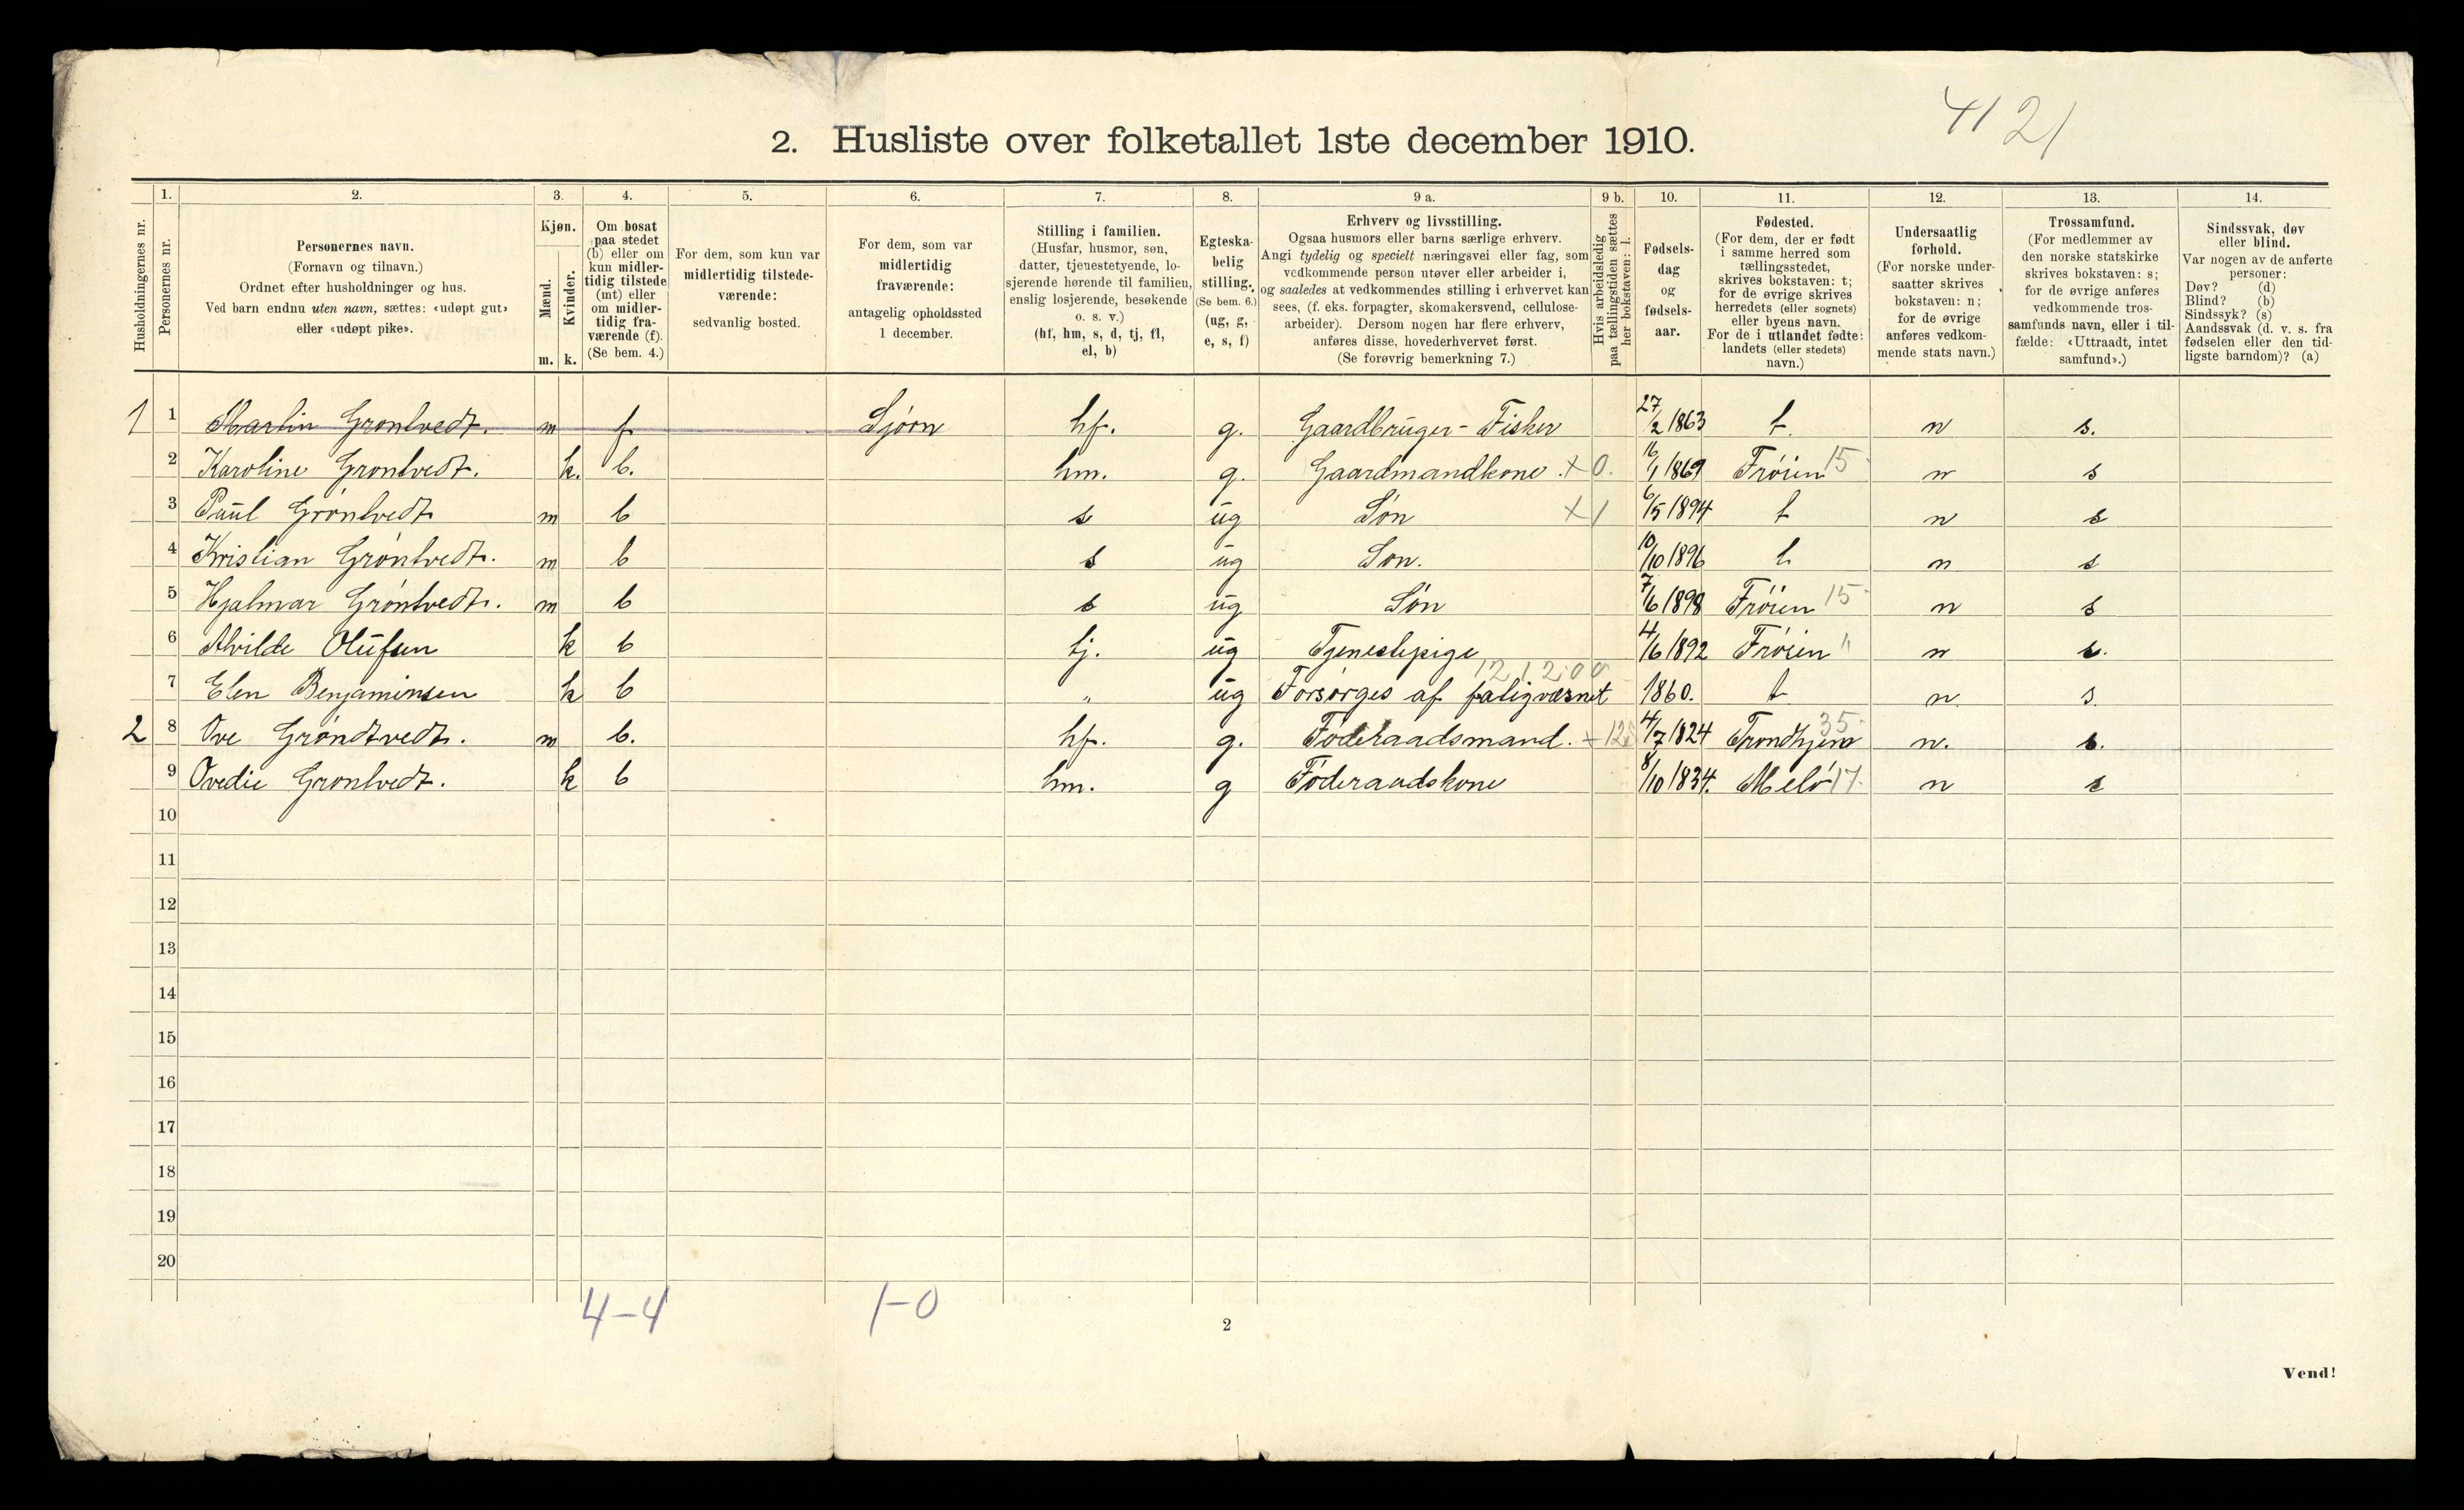 41 21
2. Husliste over folketallet 1ste december 1910.
1. 2. 3. 4. 5. 6. 7. 8. 9 a. 9 b. 10. 11. 12. 13. 14.
Husholdningernes nr.
Personernes nr.
Personernes navn.
(Fornavn og tilnavn.)
Ordnet efter husholdninger og hus.
Ved barn endnu uten navn, sættes: «udøpt gut»
eller «udøpt pike».
Kjøn.
Mænd.
Kvinder.
m. k.
Om bosat
paa stedet
(b) eller om
kun midler-
tidig tilstede
(mt) eller
om midler-
tidig fra-
værende (f).
(Se bem. 4.)
For dem, som kun var
midlertidig tilstede-
værende:
sedvanlig bosted.
For dem, som var
midlertidig
fraværende:
antagelig opholdssted
1 december.
Stilling i familien.
(Husfar, husmor, søn,
datter, tjenestetyende, lo-
sjerende hørende til familien,
enslig losjerende, besøkende
o. s. v.)
(hf, hm, s, d, tj, fl,
el, b)
Egteska-
belig
stilling.
(Se bem. 6.)
(ug, g,
e, s, f)
Erhverv og livsstilling.
Ogsaa husmors eller barns særlige erhverv.
Angi tydelig og specielt næringsvei eller fag, som
vedkommende person utøver eller arbeider i,
og saaledes at vedkommendes stilling i erhvervet kan
sees, (f. eks. forpagter, skomakersvend, cellulose-
arbeider). Dersom nogen har flere erhverv,
anføres disse, hovederhvervet først.
(Se forøvrig bemerkning 7.)
Hvis arbeidsledig
paa tællingstiden sættes
her bokstaven: l.
Fødsels-
dag
og
fødsels-
aar.
Fødested.
(For dem, der er født
i samme herred som
tællingsstedet,
skrives bokstaven: t;
for de øvrige skrives
herredets (eller sognets)
eller byens navn.
For de i utlandet fødte:
landets (eller stedets)
navn.)
Undersaatlig
forhold.
(For norske under-
saatter skrives
bokstaven: n;
for de øvrige
anføres vedkom-
mende stats navn.)
Trossamfund.
(For medlemmer av
den norske statskirke
skrives bokstaven: s;
for de øvrige anføres
vedkommende tros-
samfunds navn, eller i til-
fælde: «Uttraadt, intet
samfund».)
Sindssvak, døv
eller blind.
Var nogen av de anførte
personer:
Døv? (d)
Blind? (b)
Sindssyk? (s)
Aandssvak (d. v. s. fra
fødselen eller den tid-
ligste barndom)? (a)
1 1 Martin Grøntvedt. m f Sjøen hf. g. Gaardbruger - Fisker 27/2 1863 t. n s.
2 Karoline Grøntvedt. k. b. hm. g. Gaardmandkone. + 0. 16/1 1869 Frøien 15 n s
3 Paul Grøntvedt m b s ug Søn + 1 6/5 1894 t n s
4 Kristian Grøntvedt. m b s ug Søn. 10/10 1896 t n s
5 Hjalmar Grøntvedt. m b s ug Søn 7/6 1898 Frøien 15 n s
6 Alvilde Olufsen k b tj. ug Tjenestepige 4/6 1892 Frøien " n s.
7 Elen Benjaminsen k b " ug Forsørges af fatigvæsnet 1860. t n. s.
2 8 Ove Grøndtvedt. m b. hf. g. Føderaadsmand. 4/7 1824 Trondhjem 35 n. s.
9 Ovedie Grøntvedt. k b hm. g Føderaadskone 8/10 1834. Melø 17. n s
10
11
12
13
14
15
16
17
18
19
20
4-4 1-0
2
Vend!